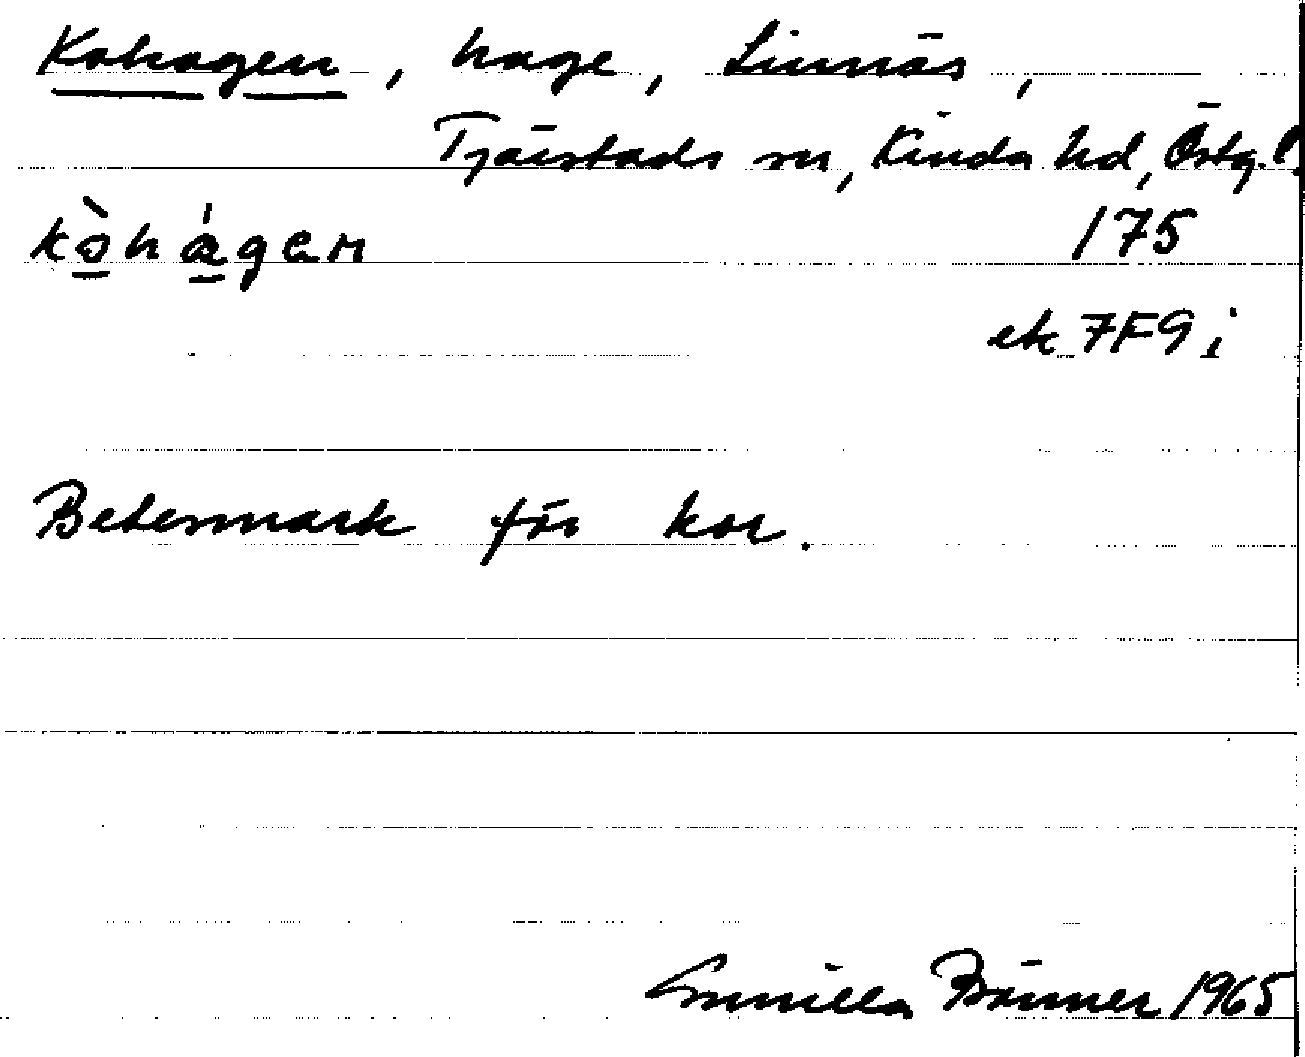 Kohagen, hage, Linnäs,
Tjärstads sn, Kinda hd, Östg.l.
kòhágen
175
ek 7F9i
Betesmark för kor.
Gunilla Brönner 1965